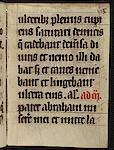 ulceribus plenus cupi
ens saturari de micis
que cadebant de mensa di
uitis et nemo illi da
bat sed et canes uenie
bant et lingebant
ulcera eius. al. ad m̄.
pater abraham mi
serere mei et mitte la